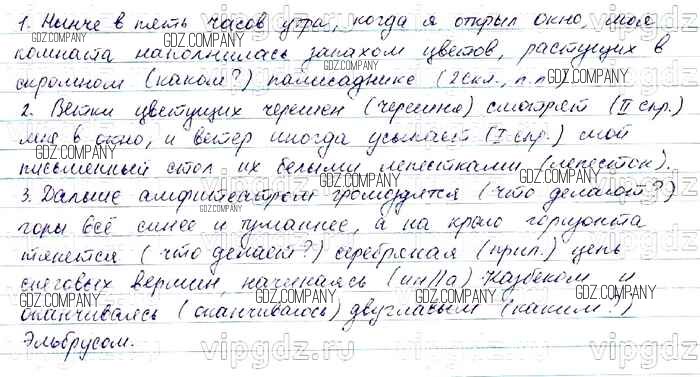 1. Нынче в пять часов утра, когда я открыл окно, моя
комната наполнилась запахом цветов, растущих в
скромном (каком?) палисаднике (2скл., п.п.)
2. Ветки цветущих черешен (черешня) смотрят (II спр.)
мне в окно, и ветер иногда усыпает (I спр.) мой
письменный стол их белыми лепестками (лепесток).
3. Дальше амфитеатром громоздятся (что делают?)
горы всё синее и туманнее, а на краю горизонта
тянется (что делает?) серебряная (прил.) цепь
снеговых вершин, начинаясь (ин//а) Казбеком и
оканчиваясь (оканчиваюсь) двуглавым (каким?)
Эльбрусом.
GDZ.COMPANY
vipgdz.ru